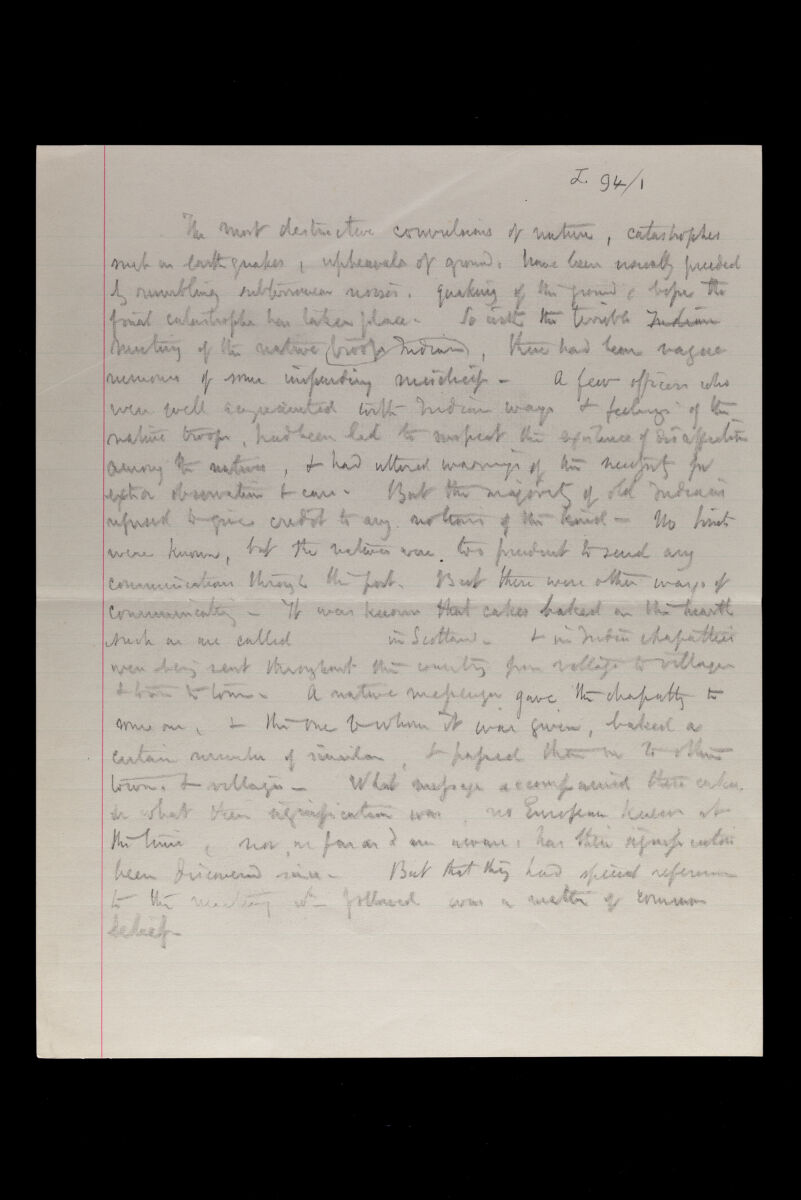 I. 94/1
The most destructive convulsions of nature, catastrophes
such as earthquakes, upheavals of ground, have been usually preceded
by rumbling subterranean noises, quaking of the ground, before the
final catastrophe has taken place. So with the terrible Indian
Meeting of the native troops Indian, there had been vague
rumours of some impending mischief - A few officers who
were well acquainted with Indian ways & feelings of the
native troops, had been led to suspect the existence of disaffection
among the natives, & had uttered warnings of the necessity for
extra observation & care. But the majority of old Indians
refused to give credit to any notions of the kind - No
were known, but the natives were too prudent to send any
communications through the post. But there were other ways of
communicating - It was known that cakes baked on the hearth
such as are called in Scotland - & in India chapatties
were being sent throughout the country from village to village
& town to town - A native messenger gave the chapatty to
some one, & the one to whom it was given, baked a
certain number of similar, & passed them on to other
towns & villages - What message accompanied these cakes
or what their signification was, no European knew at
the time, nor, as far as I am aware, has their signification
been discovered since - But that they had special reference
to the meeting wh followed was a matter of common
belief -